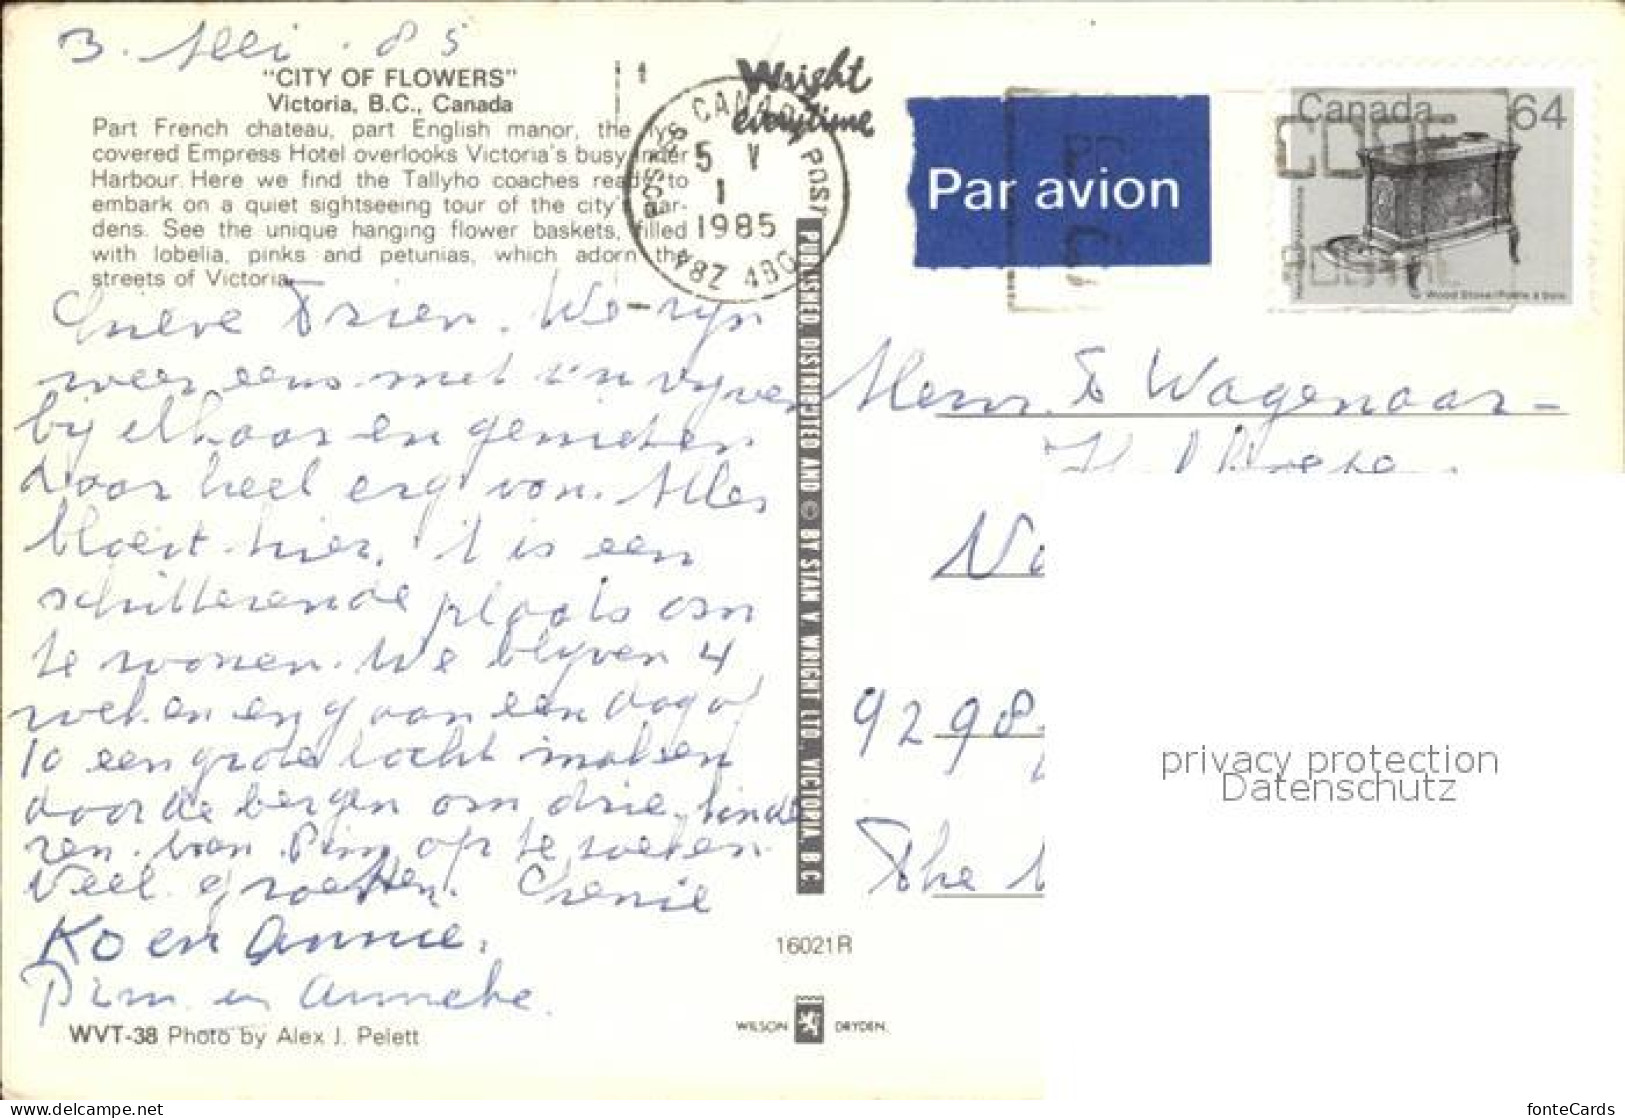 3. Mei. 85
"CITY OF FLOWERS"
Victoria, B.C., Canada
Part French chateau, part English manor, the ivy-
covered Empress Hotel overlooks Victoria's busy Inner
Harbour. Here we find the Tallyho coaches ready to
embark on a quiet sightseeing tour of the city's gar-
dens. See the unique hanging flower baskets, filled
with lobelia, pinks and petunias, which adorn the
streets of Victoria.
Wright
everytime
CANADA POST POSTES
5 V
1
1985
V8Z 4B0
Par avion
Canada 64
Wood Stove/Poêle à bois
POSTAL
CODE
POSTAL
Lieve Trien. We zyn
weer eens met z'n vyven
bij elkaar en genieten
daar heel erg van. Alles
bloeit hier. 't is een
schitterende plaats om
te wonen. We blyven 4
weken en gaan een dag of
10 een grote tocht maken
door de bergen om drie kinde
ren van Pim op te zoeken
Veel groeten.
Ko en Annie.
Pim en Anneke.
WVT-38 Photo by Alex J. Pelett
PUBLISHED, DISTRIBUTED AND © BY STAN V. WRIGHT LTD., VICTORIA, B.C.
16021R
WILSON DRYDEN
Wagenaar-
9298
The
privacy protection
Datenschutz
fonteCards